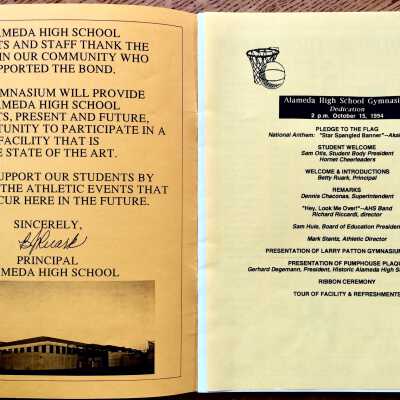 AMEDA HIGH SCHOOL
TS AND STAFF THANK THE
IN OUR COMMUNITY WHO
PPORTED THE BOND.
YMNASIUM WILL PROVIDE
AMEDA HIGH SCHOOL
TS, PRESENT AND FUTURE,
TUNITY TO PARTICIPATE IN A
FACILITY THAT IS
E STATE OF THE ART.
UPPORT OUR STUDENTS BY
THE ATHLETIC EVENTS THAT
CUR HERE IN THE FUTURE.
SINCERELY,
PRINCIPAL
MEDA HIGH SCHOOL
Alameda High School Gymnasi
Dedication
2 p.m. October 15, 1994
PLEDGE TO THE FLAG
National Anthem: "Star Spangled Banner"--
STUDENT WELCOME
Sam Otis, Student Body President
Hornet Cheerleaders
WELCOME & INTRODUCTIONS
Betty Ruark, Principal
REMARKS
Dennis Chaconas, Superintendent
"Hey, Look Me Over!"--AHS Band
Richard Riccardi, director
Sam Huie, Board of Education President
Mark Stantz, Athletic Director
PRESENTATION OF LARRY PATTON GYMNASIU
PRESENTATION OF PUMPHOUSE PLAQU
Gerhard Degemann, President, Historic Alameda High S
RIBBON CEREMONY
TOUR OF FACILITY & REFRESHMENTS